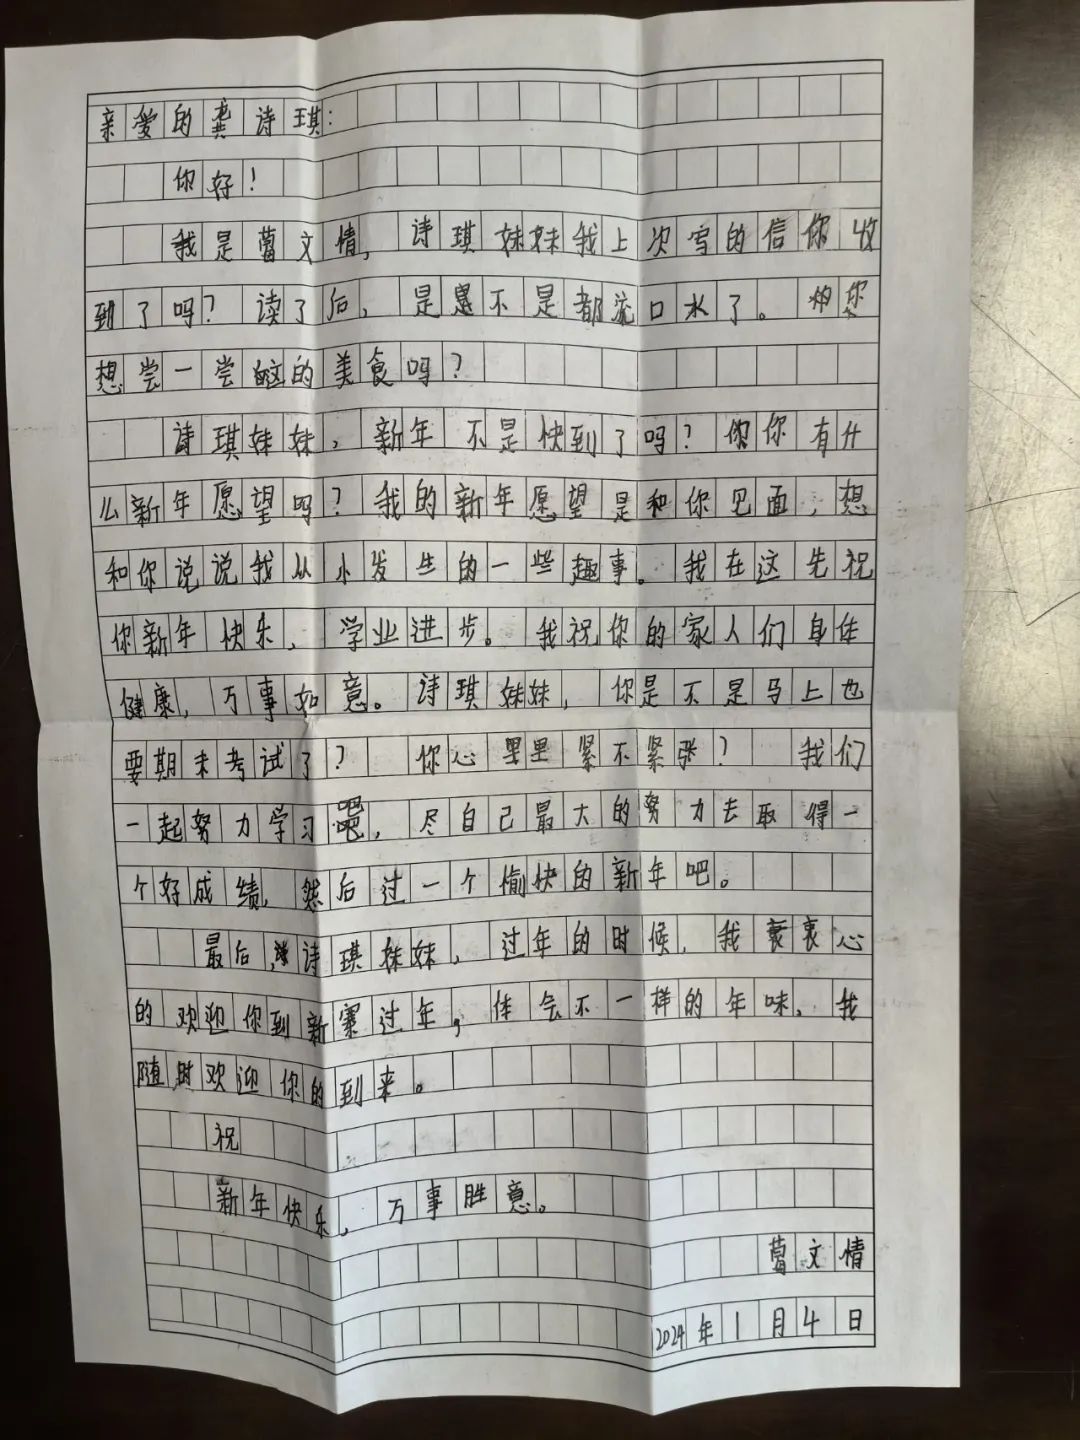 亲爱的龚诗琪：
你好！
我是葛文情，诗琪妹妹我上次写的信你收
到了吗？读了后，是不是都流口水了。你
想尝一尝这的美食吗？
诗琪妹妹，新年不是快到了吗？你有什
么新年愿望吗？我的新年愿望是和你见面，想
和你说说我从小发生的一些趣事。我在这先祝
你新年快乐，学业进步。我祝你的家人们身体
健康，万事如意。诗琪妹妹，你是不是马上也
要期末考试了？你心里紧不紧张？我们
一起努力学习吧，尽自己最大的努力去取得一
个好成绩，然后过一个愉快的新年吧。
最后，诗琪妹妹，过年的时候，我衷心
的欢迎你到新寨过年，体会不一样的年味，我
随时欢迎你的到来。
祝
新年快乐，万事胜意。
葛文情
2024年1月4日